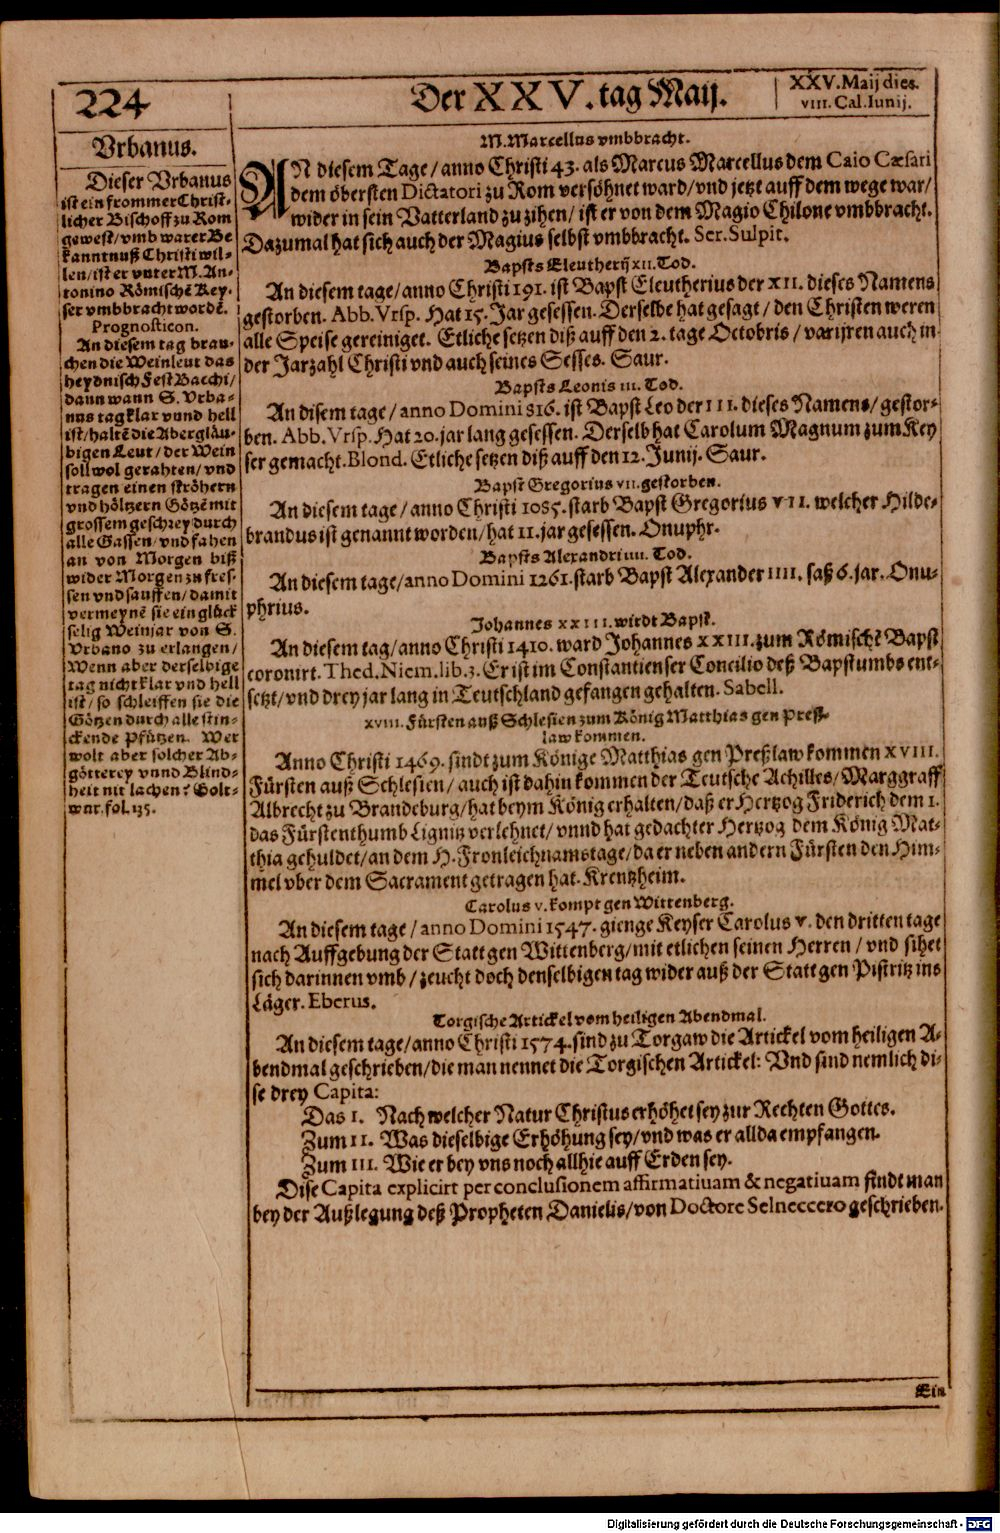 224
Der XXV. tag Maij.
XXV. Maij dies.
VIII. Cal. Iunij.
Vrbanus.
Dieser Vrbanus
ist ein frommer Christ-
licher Bischoff zu Rom
gewest/vmb warer Be
kanntnuß Christi wil-
len/ist er vnter M. An-
tonino Römischē Key-
ser vmbbracht wordē.
Prognosticon.
An diesem tag brau-
chen die Weinleut das
heydnisch Fest Bacchi/
dann wann S. Vrba-
nus tag klar vnnd hell
ist/haltē die Abergläu-
bigen Leut/der Wein
soll wol gerahten/vnd
tragen einen ströhern
vnd höltzern Götzē mit
grossem geschrey durch
alle Gassen/vnd fahen
an von Morgen biß
wider Morgen zu fres-
sen vnd sauffen/damit
vermeynē sie ein glück
selig Weinjar von S.
Vrbano zu erlangen/
Wenn aber derselbige
tag nicht klar vnd hell
ist/so schleiffen sie die
Götzen durch alle stin-
ckende Pfützen. Wer
wolt aber solcher Ab-
götterey vnnd Blind-
heit nit lachen? Golt-
wur. fol. 125.
M. Marcellus vmbbracht.
AN diesem Tage/anno Christi 43. als Marcus Marcellus dem Caio Cæsari
dem öbersten Dictatori zu Rom versöhnet ward/vnd jetzt auff dem wege war/
wider in sein Vatterland zu zihen/ist er von dem Magio Chilone vmbbracht.
Dazumal hat sich auch der Magius selbst vmbbracht. Ser. Sulpit.
Bapsts Eleutherij XII. Tod.
An diesem tage/anno Christi 191. ist Bapst Eleutherius der XII. dieses Namens
gestorben. Abb. Vrsp. Hat 15. Jar gesessen. Derselbe hat gesagt/den Christen weren
alle Speise gereiniget. Etliche setzen diß auff den 2. tage Octobris/varijren auch in
der Jarzahl Christi vnd auch seines Sesses. Saur.
Bapsts Leonis III. Tod.
An disem tage/anno Domini 816. ist Bapst Leo der III. dieses Namens/gestor-
ben. Abb. Vrsp. Hat 20. jar lang gesessen. Derselb hat Carolum Magnum zum Key
ser gemacht. Blond. Etliche setzen diß auff den 12. Junij. Saur.
Bapst Gregorius VII. gestorben.
An diesem tage/anno Christi 1085. starb Bapst Gregorius VII. welcher Hilde-
brandus ist genannt worden/hat 11. jar gesessen. Onuphr.
Bapsts Alexandri IIII. Tod.
An diesem tage/anno Domini 1261. starb Bapst Alexander IIII. saß 6. jar. Onu-
phrius.
Johannes XXIII. wirdt Bapst.
An diesem tag/anno Christi 1410. ward Johannes XXIII. zum Römischē Bapst
coronirt. Thed. Niem. lib. 3. Er ist im Constantienser Concilio deß Bapstumbs ent-
setzt/vnd drey jar lang in Teutschland gefangen gehalten. Sabell.
XVIII. Fürsten auß Schlesien zum König Matthias gen Preß-
law kommen.
Anno Christi 1469. sindt zum Könige Matthias gen Preßlaw kommen XVIII.
Fürsten auß Schlesien/auch ist dahin kommen der Teutsche Achilles/Marggraff
Albrecht zu Brandeburg/hat beym König erhalten/daß er Hertzog Friderich dem 1.
das Fürstenthumb Lignitz verlehnet/vnnd hat gedachter Hertzog dem König Mat-
thia gehuldet/an dem H. Fronleichnamstage/da er neben andern Fürsten den Him-
mel vber dem Sacrament getragen hat. Krentzheim.
Carolus V. kompt gen Wittenberg.
An diesem tage/anno Domini 1547. gienge Keyser Carolus V. den dritten tage
nach Auffgebung der Statt gen Wittenberg/mit etlichen seinen Herren/vnd sihet
sich darinnen vmb/zeucht doch denselbigen tag wider auß der Statt gen Pistritz ins
Läger. Eberus.
Torgische Artickel vom heiligen Abendmal.
An diesem tage/anno Christi 1574. sind zu Torgaw die Artickel vom heiligen A-
bendmal geschrieben/die man nennet die Torgischen Artickel: Vnd sind nemlich di-
se drey Capita:
Das I. Nach welcher Natur Christus erhöhet sey zur Rechten Gottes.
Zum II. Was dieselbige Erhöhung sey/vnd was er allda empfangen.
Zum III. Wie er bey vns noch allhie auff Erden sey.
Dise Capita explicirt per conclusionem affirmatiuam & negatiuam findt man
bey der Außlegung deß Propheten Danielis/von Doctore Selneccero geschrieben.
Ein
Digitalisierung gefördert durch die Deutsche Forschungsgemeinschaft - DFG